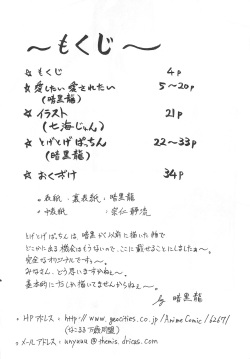 ～もくじ～
☆ もくじ 4p
☆ 愛したい 愛されたい 5～20p
(暗黒龍)
☆ イラスト 21p
(七海じゅん)
☆ とげとげぱっちん 22～33p
(暗黒龍)
☆ おくづけ 34p
○表紙・裏表紙・暗黒龍
○中表紙 宗仁静流
とげとげぱっちんは、暗黒が以前に描いた物で
どこかに出る機会はもうないので、ここに載せることにしましたぁ～。
完全なオリジナルですぅ～。
みなさん、どう思いますかねぇ～。
基本的にこれしか描いてませんからねぇ～。
by 暗黒龍
○HPアドレス：http://www.geocities.co.jp/AnimeComic/6267/
○メールアドレス：@themis.dricas.com